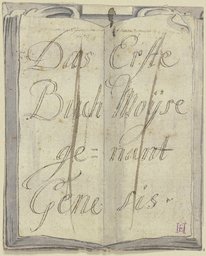 Das Erste
Buch Moÿse
ge= nant
Gene sis.